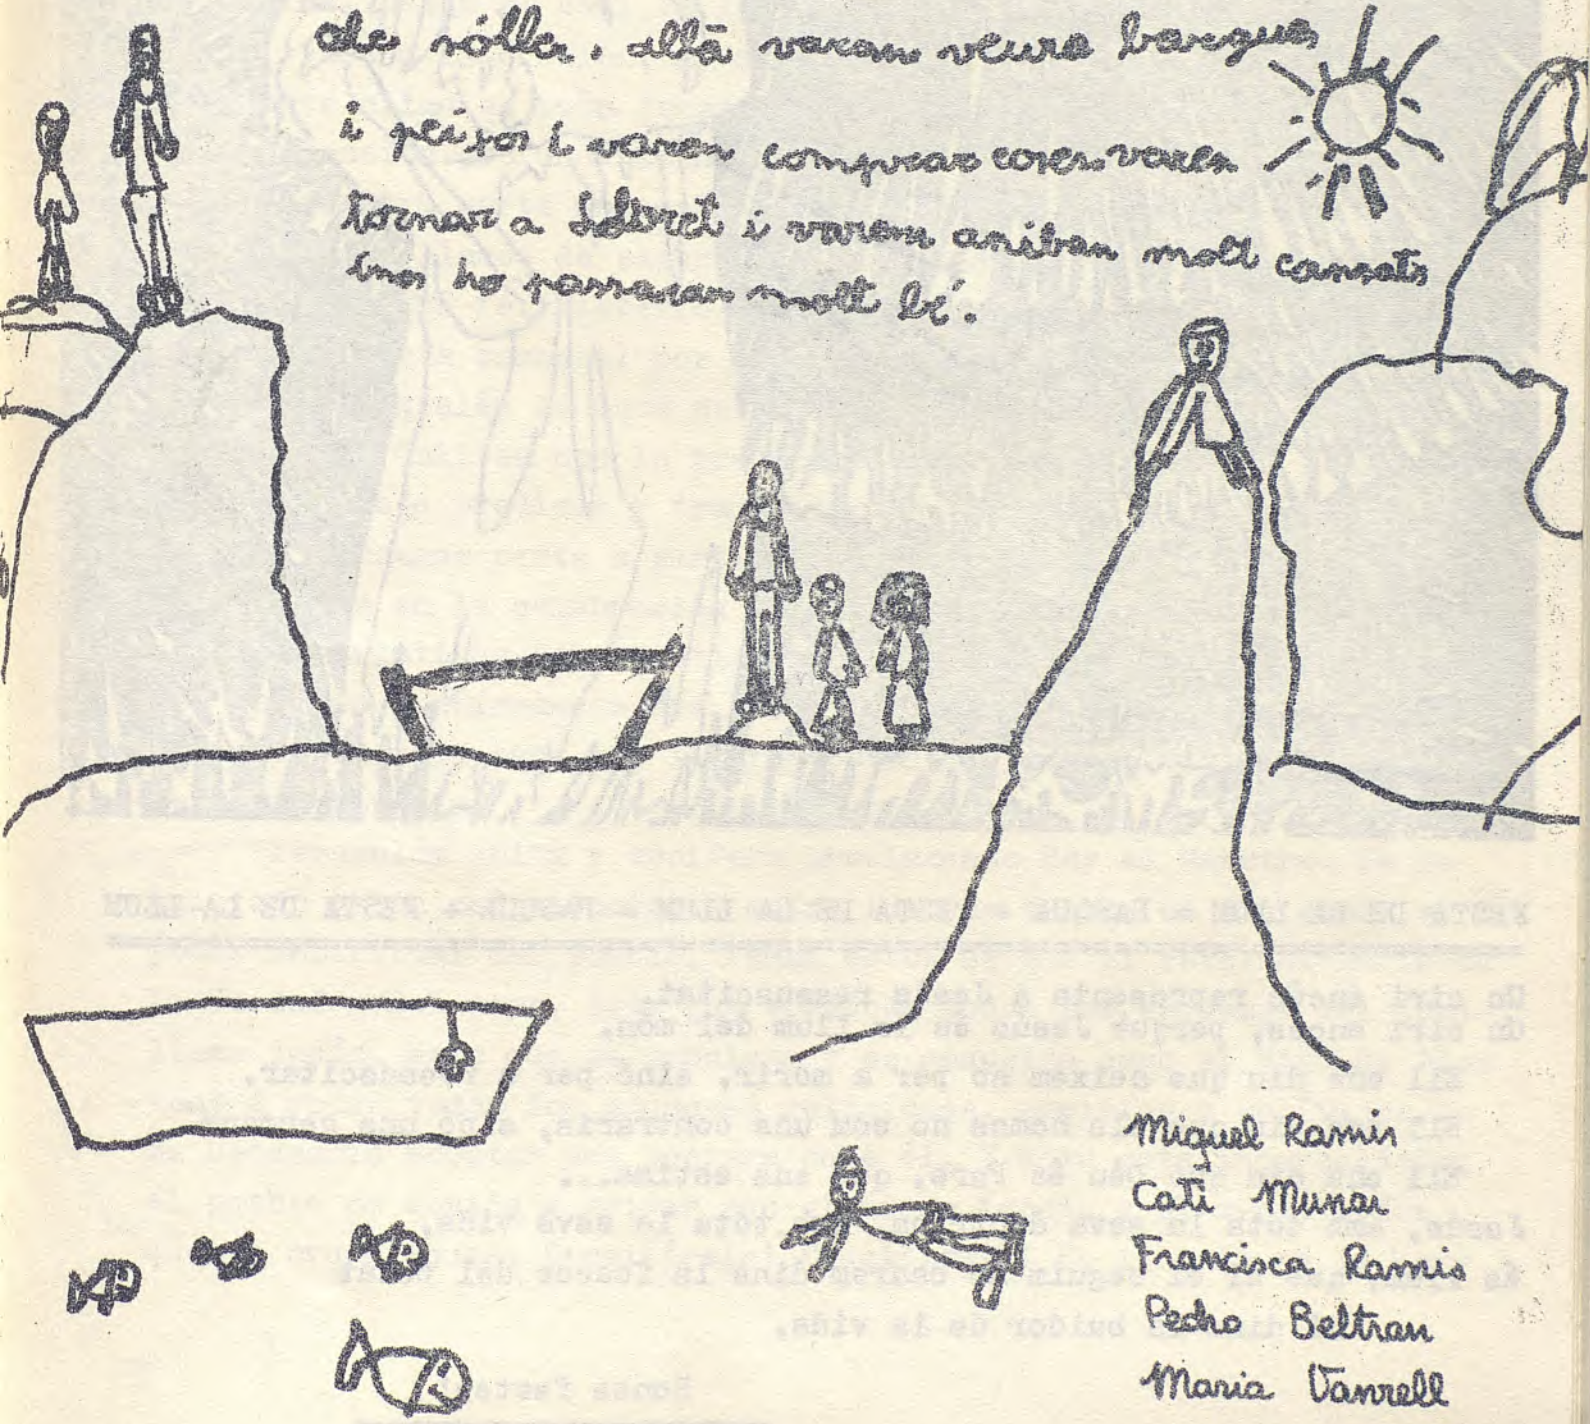 de sóller. allà varam veura barques
i peixos i varen comprar coses varen
tornar a i varem aniban molt cansats
i nos ho passaran molt bé.
Miquel Ramis
Cati Munar
Francisca Ramis
Pedro Beltran
Maria Vanrell